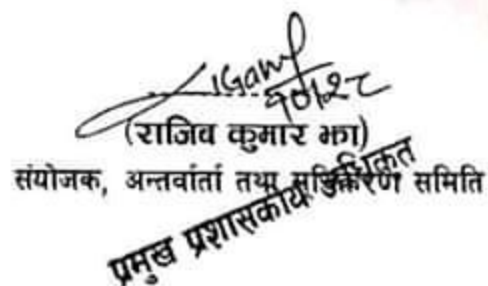 १०।२८
(राजिव कुमार झा)
संयोजक, अन्तर्वार्ता तथा सूचिकरण समिति
प्रमुख प्रशासकीय अधिकृत